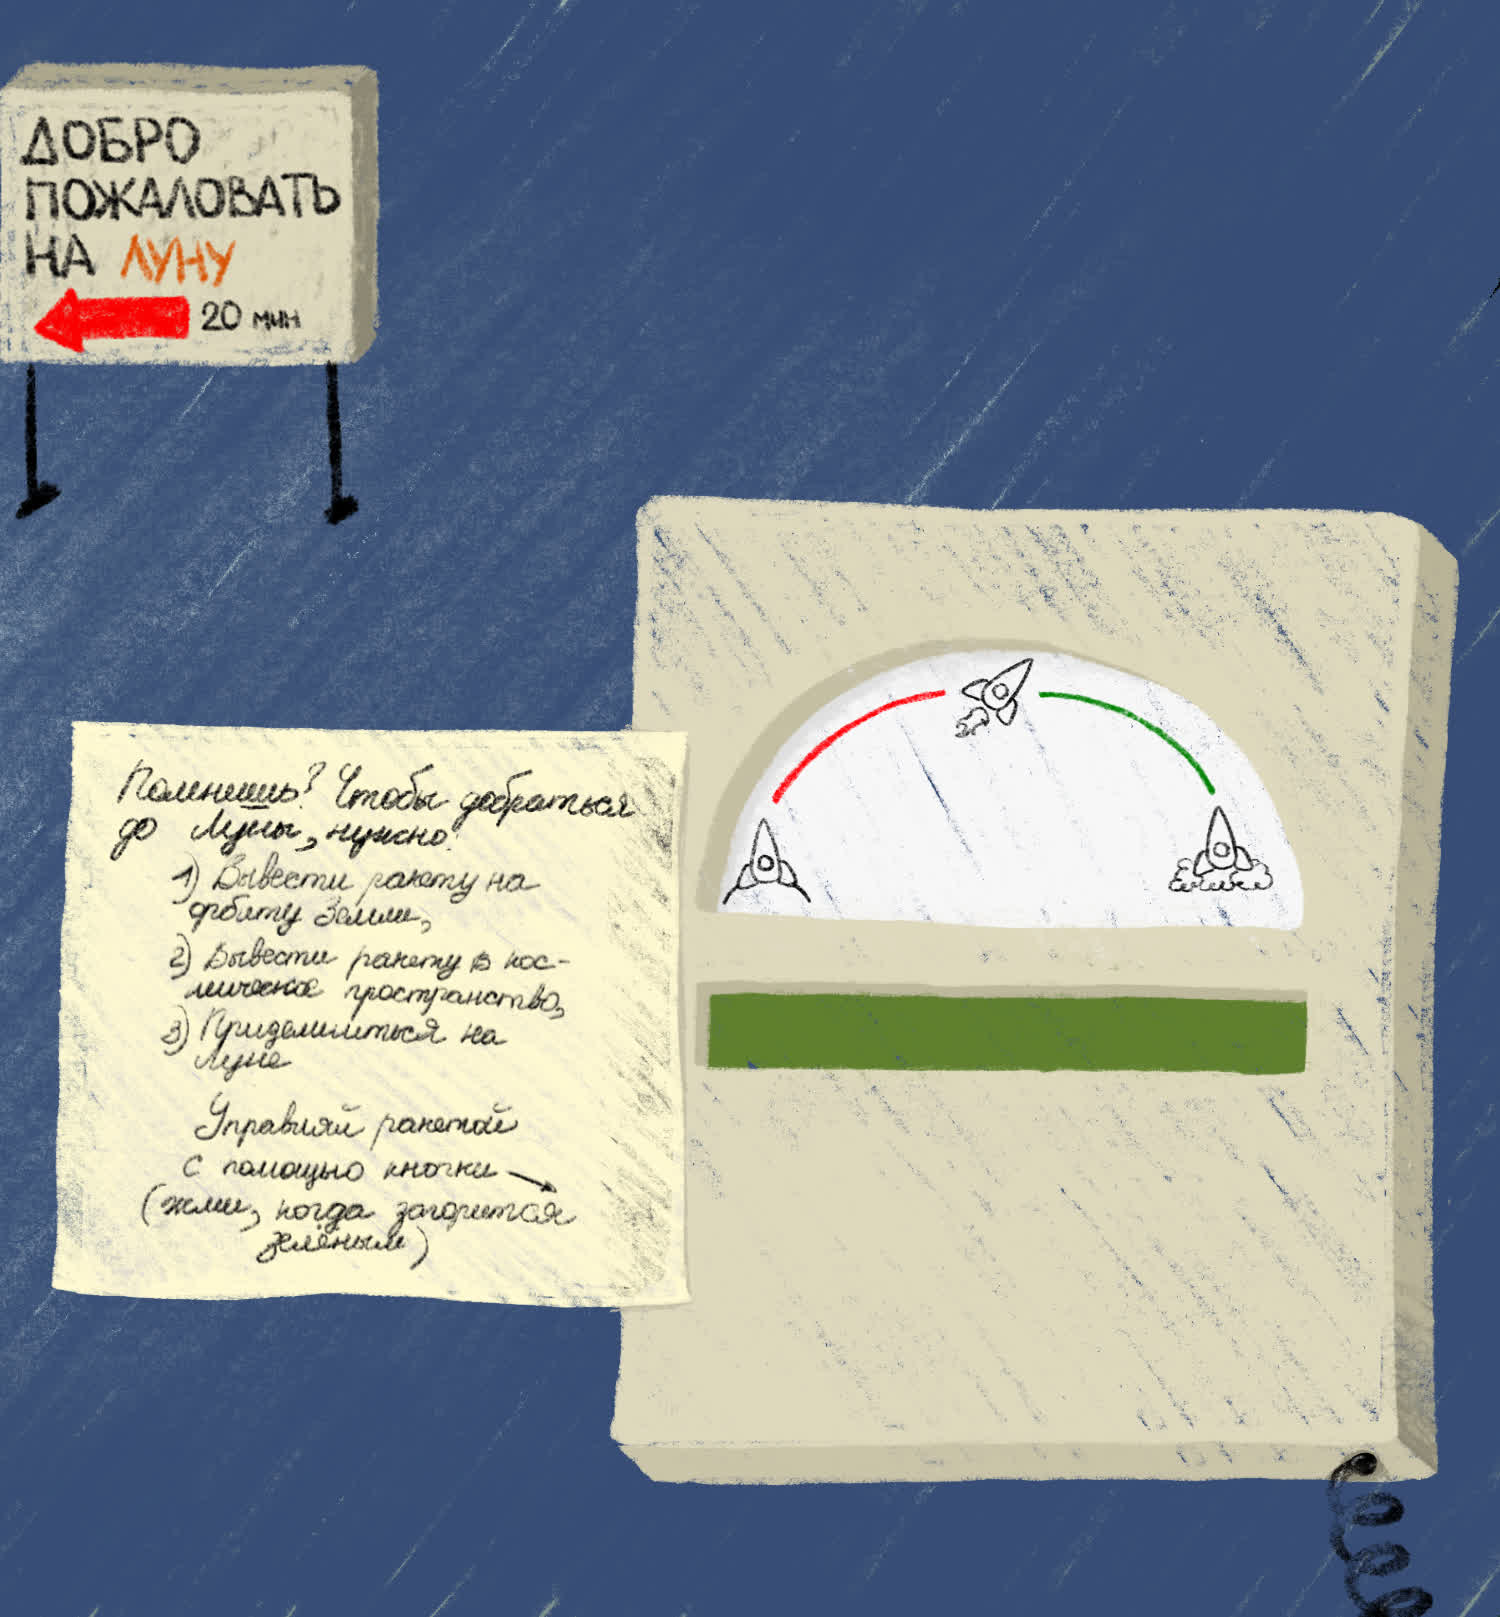 ДОБРО
ПОЖАЛОВАТЬ
НА ЛУНУ
20 мин
Помнишь? Чтобы добраться
до Луны, нужно:
1) Вывести ракету на
орбиту Земли,
2) Вывести ракету в кос-
мическое пространство,
3) Прилуниться на
Луне
Управляй ракетой
с помощью кнопки
(жми, когда загорится
зелёным)